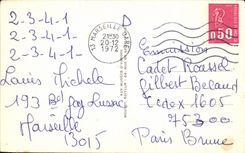 2-3-4-1
2-3-4-1
2-3-4-1
Louis Michele
193 Bd Joy Lusne
Marseille
13015
13 MARSEILLE GARE
21H30
20-12
1972
0,50
Emission
Cadet Roussel
Gilbert Becaud
Cedex 1605
75300
Paris Brune